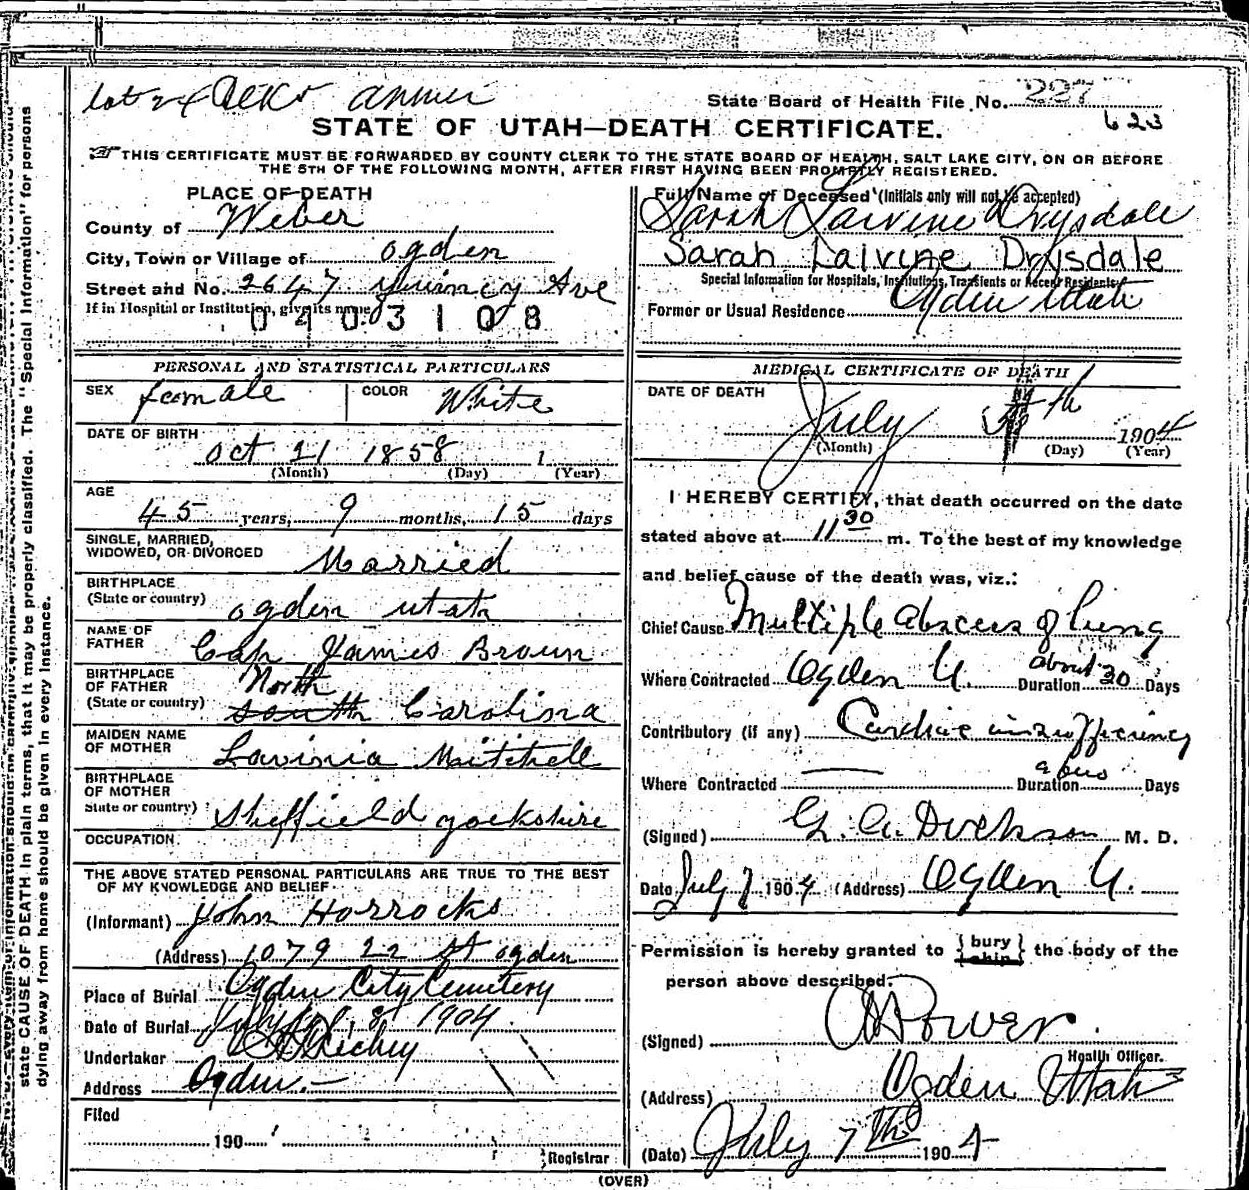 Annie
State Board of Health File No. 227
623
STATE OF UTAH—DEATH CERTIFICATE.
THIS CERTIFICATE MUST BE FORWARDED BY COUNTY CLERK TO THE STATE BOARD OF HEALTH, SALT LAKE CITY, ON OR BEFORE
THE 5TH OF THE FOLLOWING MONTH, AFTER FIRST HAVING BEEN PROMPTLY REGISTERED.
PLACE OF DEATH
County of Weber
City, Town or Village of Ogden
Street and No. 2647 Quincy Ave
If in Hospital or Institution, give its name
0403108
PERSONAL AND STATISTICAL PARTICULARS
SEX female COLOR White
DATE OF BIRTH
Oct 21 1858
(Month) (Day) (Year)
AGE
45 years, 9 months, 15 days
SINGLE, MARRIED,
WIDOWED, OR DIVORCED Married
BIRTHPLACE
(State or country) Ogden Utah
NAME OF
FATHER Cap James Brown
BIRTHPLACE
OF FATHER North
(State or country) south Carolina
MAIDEN NAME
OF MOTHER Lavinia Mitchell
BIRTHPLACE
OF MOTHER
State or country) Sheffield Yorkshire
OCCUPATION
THE ABOVE STATED PERSONAL PARTICULARS ARE TRUE TO THE BEST
OF MY KNOWLEDGE AND BELIEF
(Informant) John Horrocks
(Address) 1079 22 St Ogden
Place of Burial Ogden City Cemetery
Date of Burial July 8 1904
Undertaker Richey
Address Ogden.—
Filed
190
Registrar
Full Name of Deceased (Initials only will not be accepted)
Sarah Laivine Drysdale
Sarah Laivine Drysdale
Special Information for Hospitals, Institutions, Transients or Recent Residents
Former or Usual Residence Ogden Utah
MEDICAL CERTIFICATE OF DEATH
DATE OF DEATH
July th 1904
(Month) (Day) (Year)
I HEREBY CERTIFY, that death occurred on the date
stated above at 11 30 m. To the best of my knowledge
and belief cause of the death was, viz.:
Chief Cause Multiple Abscess of lung
Where Contracted Ogden U. Duration about 30 Days
Contributory (if any) Cardiac insufficiency
Where Contracted — Duration Days
(Signed) G. A. Dickson M. D.
Date July 7 1904 (Address) Ogden U.
Permission is hereby granted to {bury ship} the body of the
person above described.
(Signed) Power
Health Officer.
(Address) Ogden Utah
(Date) July 7th 1904
(OVER)
state CAUSE OF DEATH in plain terms, that it may be properly classified. The "Special Information" for persons
dying away from home should be given in every instance.